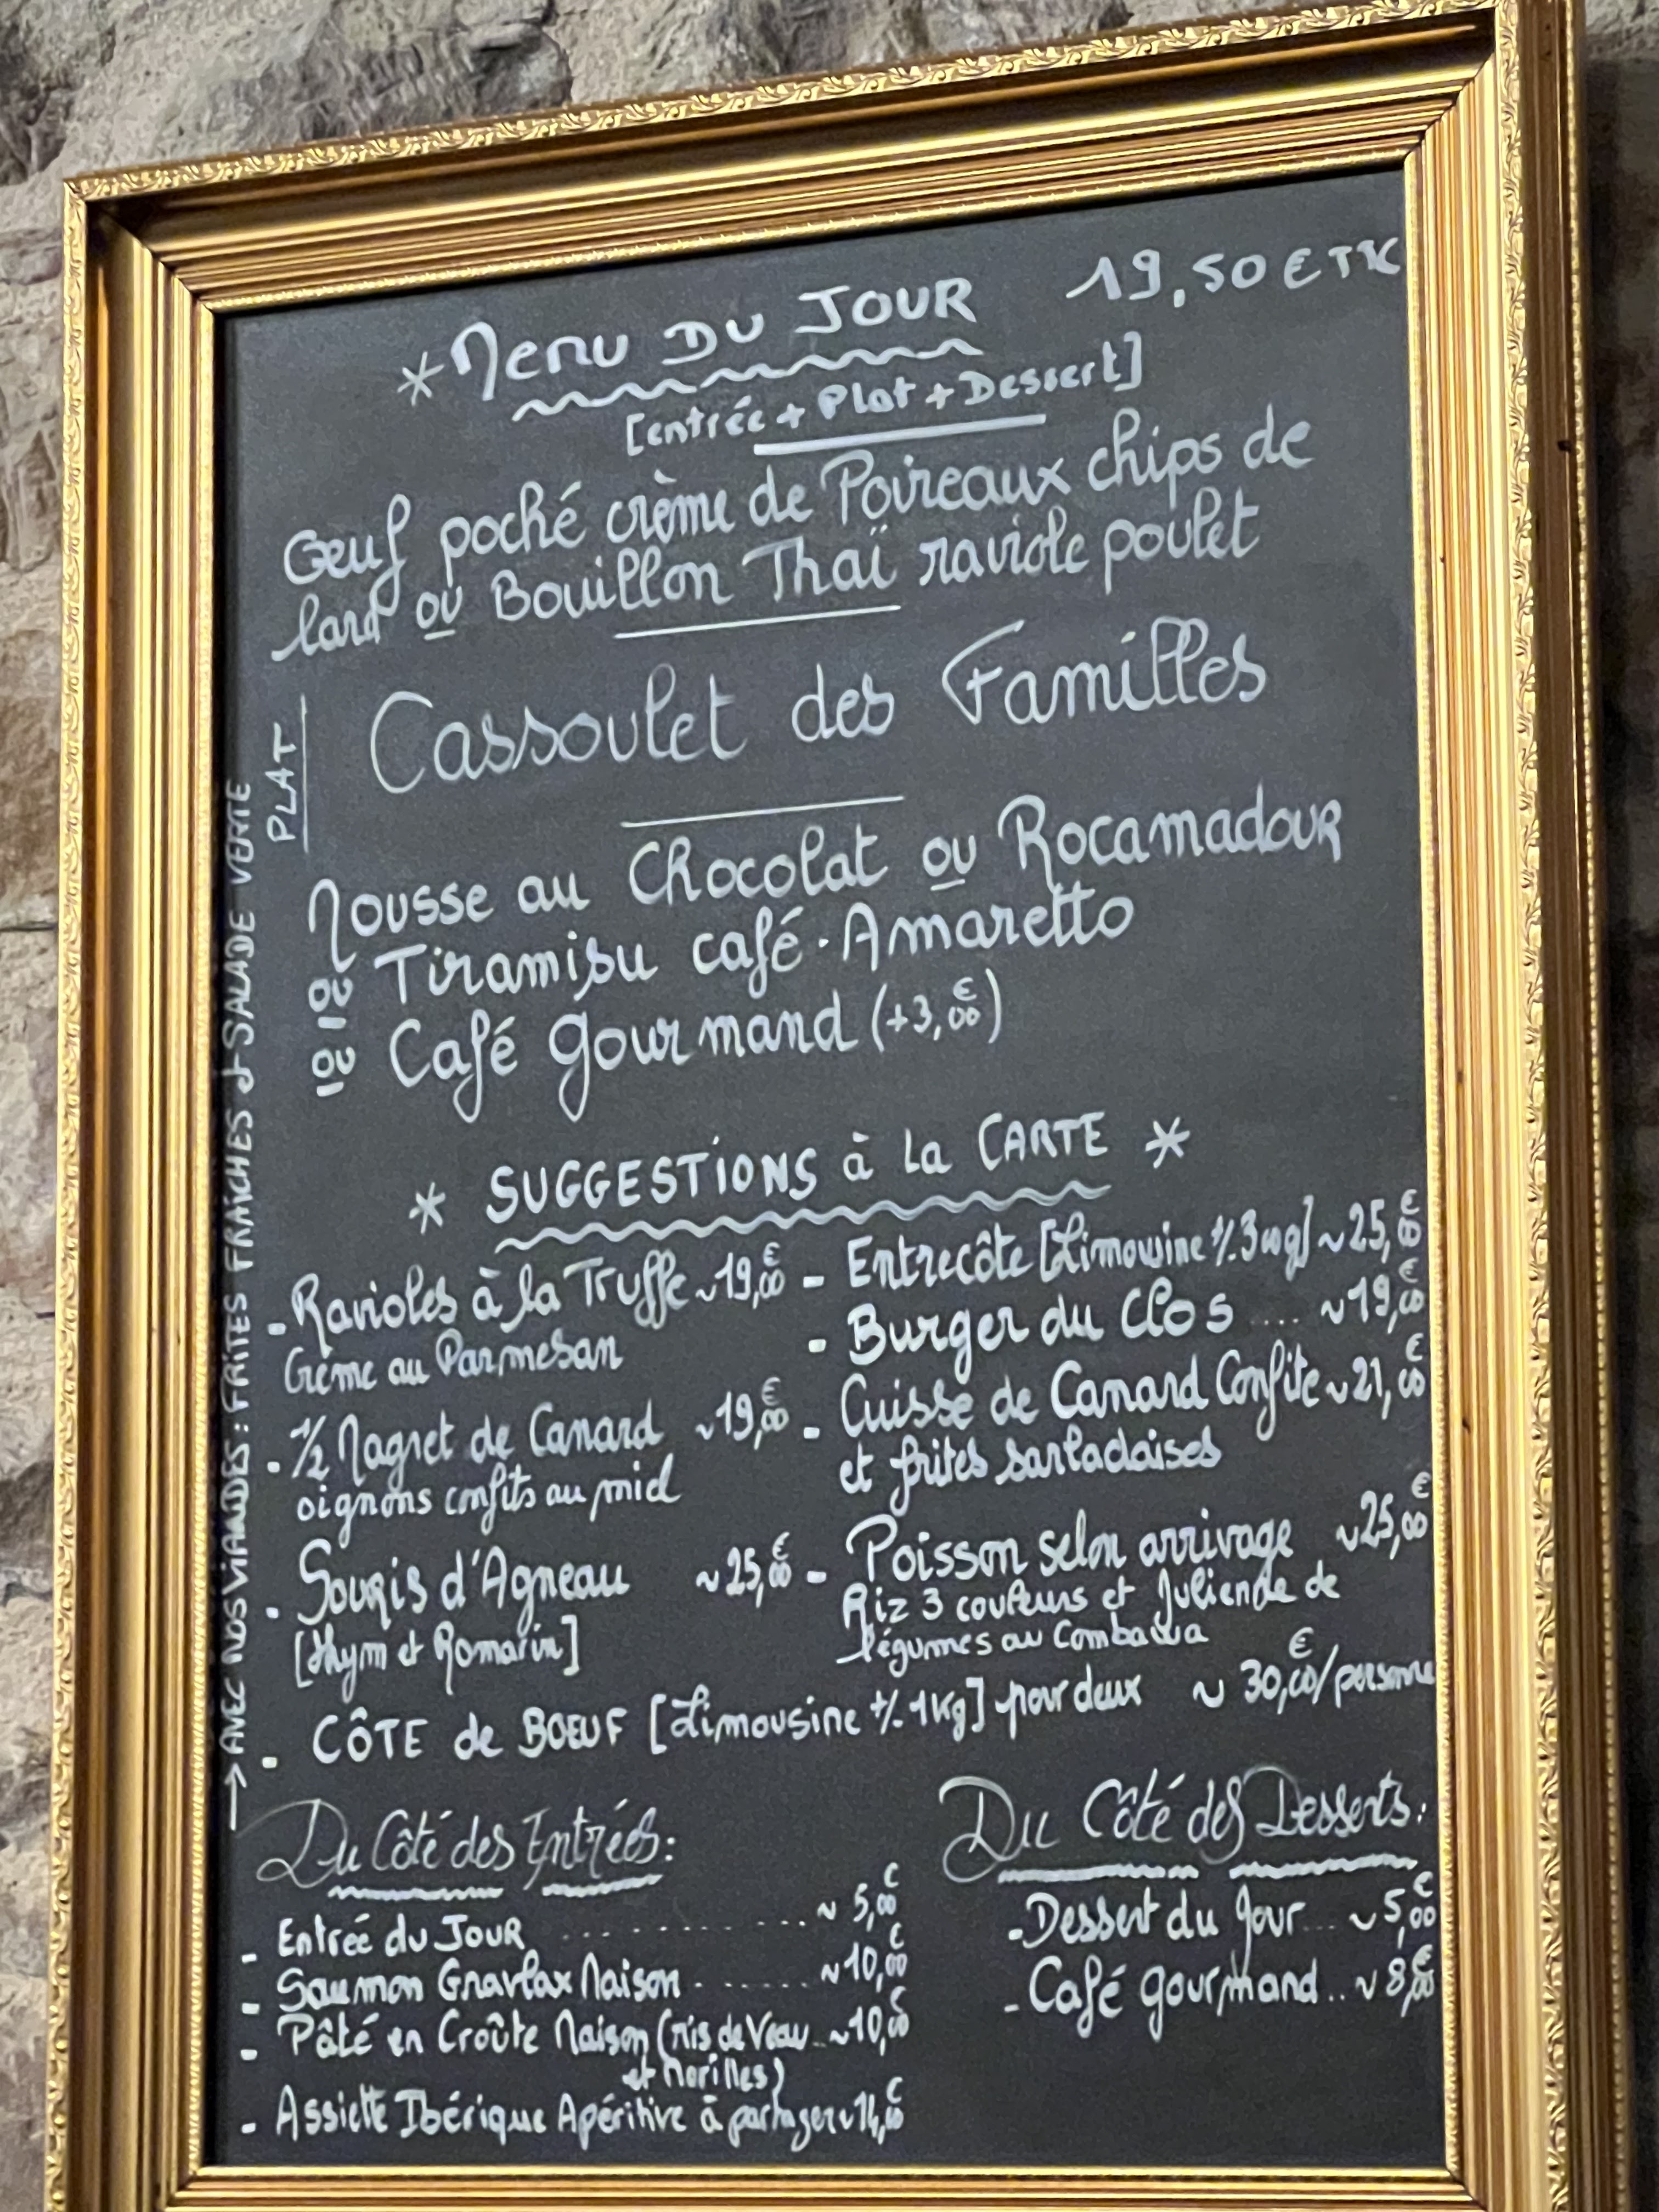 *Menu DU JOUR 19,50€ TTC
[entrée + Plat + Dessert]
Oeuf poché crème de Poireaux chips de
lard ou Bouillon Thaï raviole poulet
PLAT
Cassoulet des Familles
Mousse au Chocolat ou Rocamadour
ou Tiramisu café. Amaretto
ou Café gourmand (+3,00€)
* SUGGESTIONS à La CARTE *
- Ravioles à la Truffe ~19,00€
Crème au Parmesan
- 1/2 Magret de Canard ~19,00€
oignons confits au miel
- Souris d'Agneau ~25,00€
[thym et Romarin]
- Entrecôte [Limousine +/- 300g] ~25,00€
- Burger du Clos .... ~19,00€
- Cuisse de Canard Confite ~21,00€
et frites sarladaises
- Poisson selon arrivage ~25,00€
Riz 3 couleurs et Julienne de
légumes au Combawa
- CÔTE de BOEUF [Limousine +/- 1Kg] pour deux ~ 30,00€/personne
→ AVEC NOS VIANDES : FRITES FRAÎCHES & SALADE VERTE
Du Côté des Entrées:
- Entrée du JOUR .............. ~ 5,00€
- Saumon Gravlax Maison ....... ~10,00€
- Pâté en Croûte Maison (ris de Veau .. ~10,00€
et Morilles)
- Assiette Ibérique Apéritive à partager ~14,00€
Du Côté des Desserts:
- Dessert du Jour ... ~ 5,00€
- Café gourmand .. ~ 8,00€